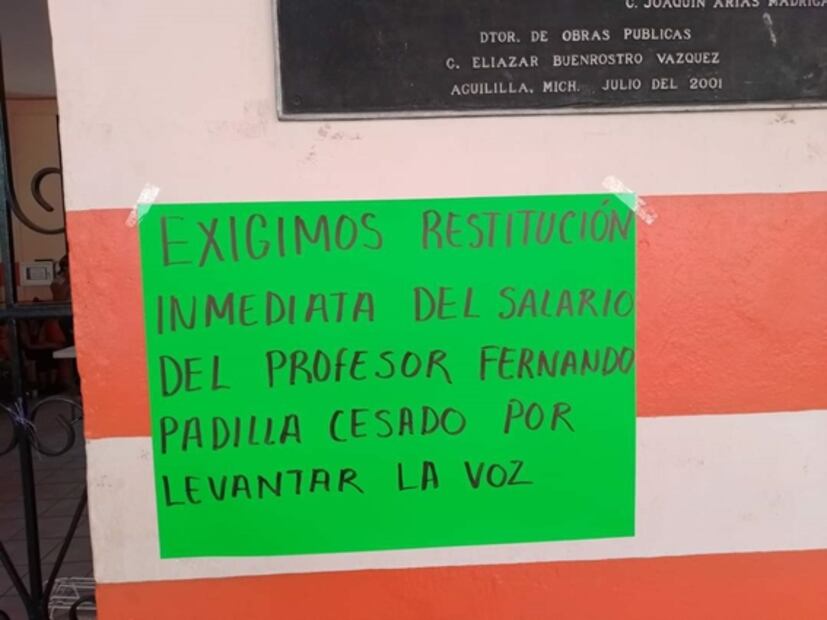 C. JOAQUIN ARIAS MADRIGA
DTOR. DE OBRAS PUBLICAS
C. ELIAZAR BUENROSTRO VAZQUEZ
AGUILILLA, MICH. JULIO DEL 2001
EXIGIMOS RESTITUCIÓN
INMEDIATA DEL SALARIO
DEL PROFESOR FERNANDO
PADILLA CESADO POR
LEVANTAR LA VOZ